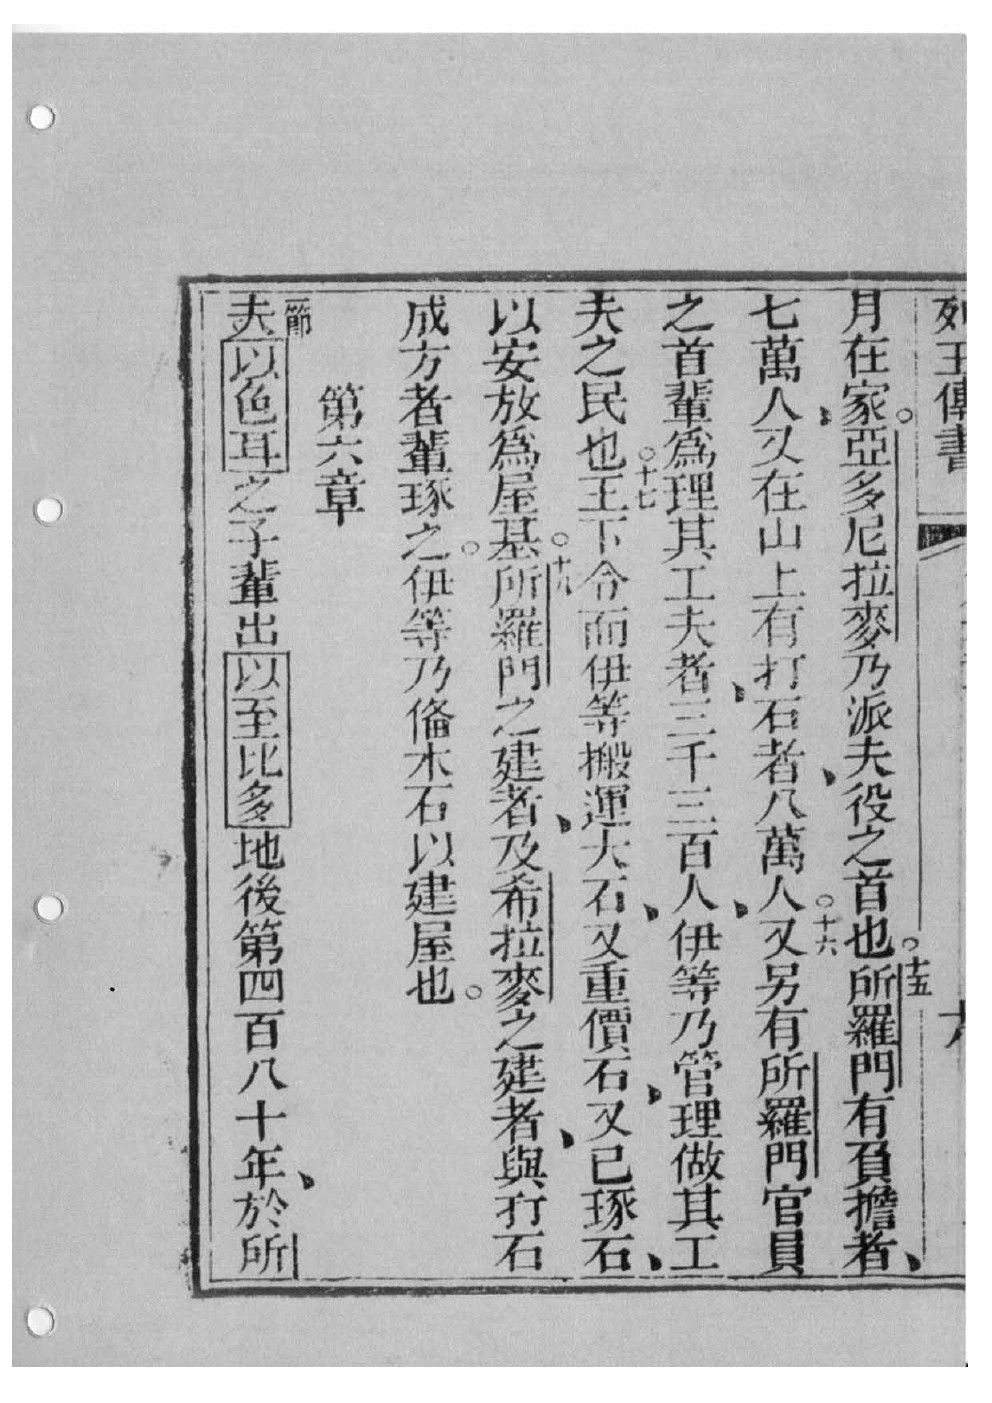 列王傳書
月在家。亞多尼拉麥乃派夫役之首也。十五所羅門有負擔者、
七萬人、又在山上有打石者、八萬人。十六又另有所羅門官員
之首輩爲理其工夫者、三千三百人、伊等乃管理做其工
夫之民也。十七王下令而伊等搬運大石、又重價石、又已琢石、
以安放爲屋基。十八所羅門之建者、及希拉麥之建者、與孖石
成方者輩琢之。伊等乃俻木石以建屋也。
第六章
一節夫以色耳之子輩出以至比多地後第四百八十年、於所